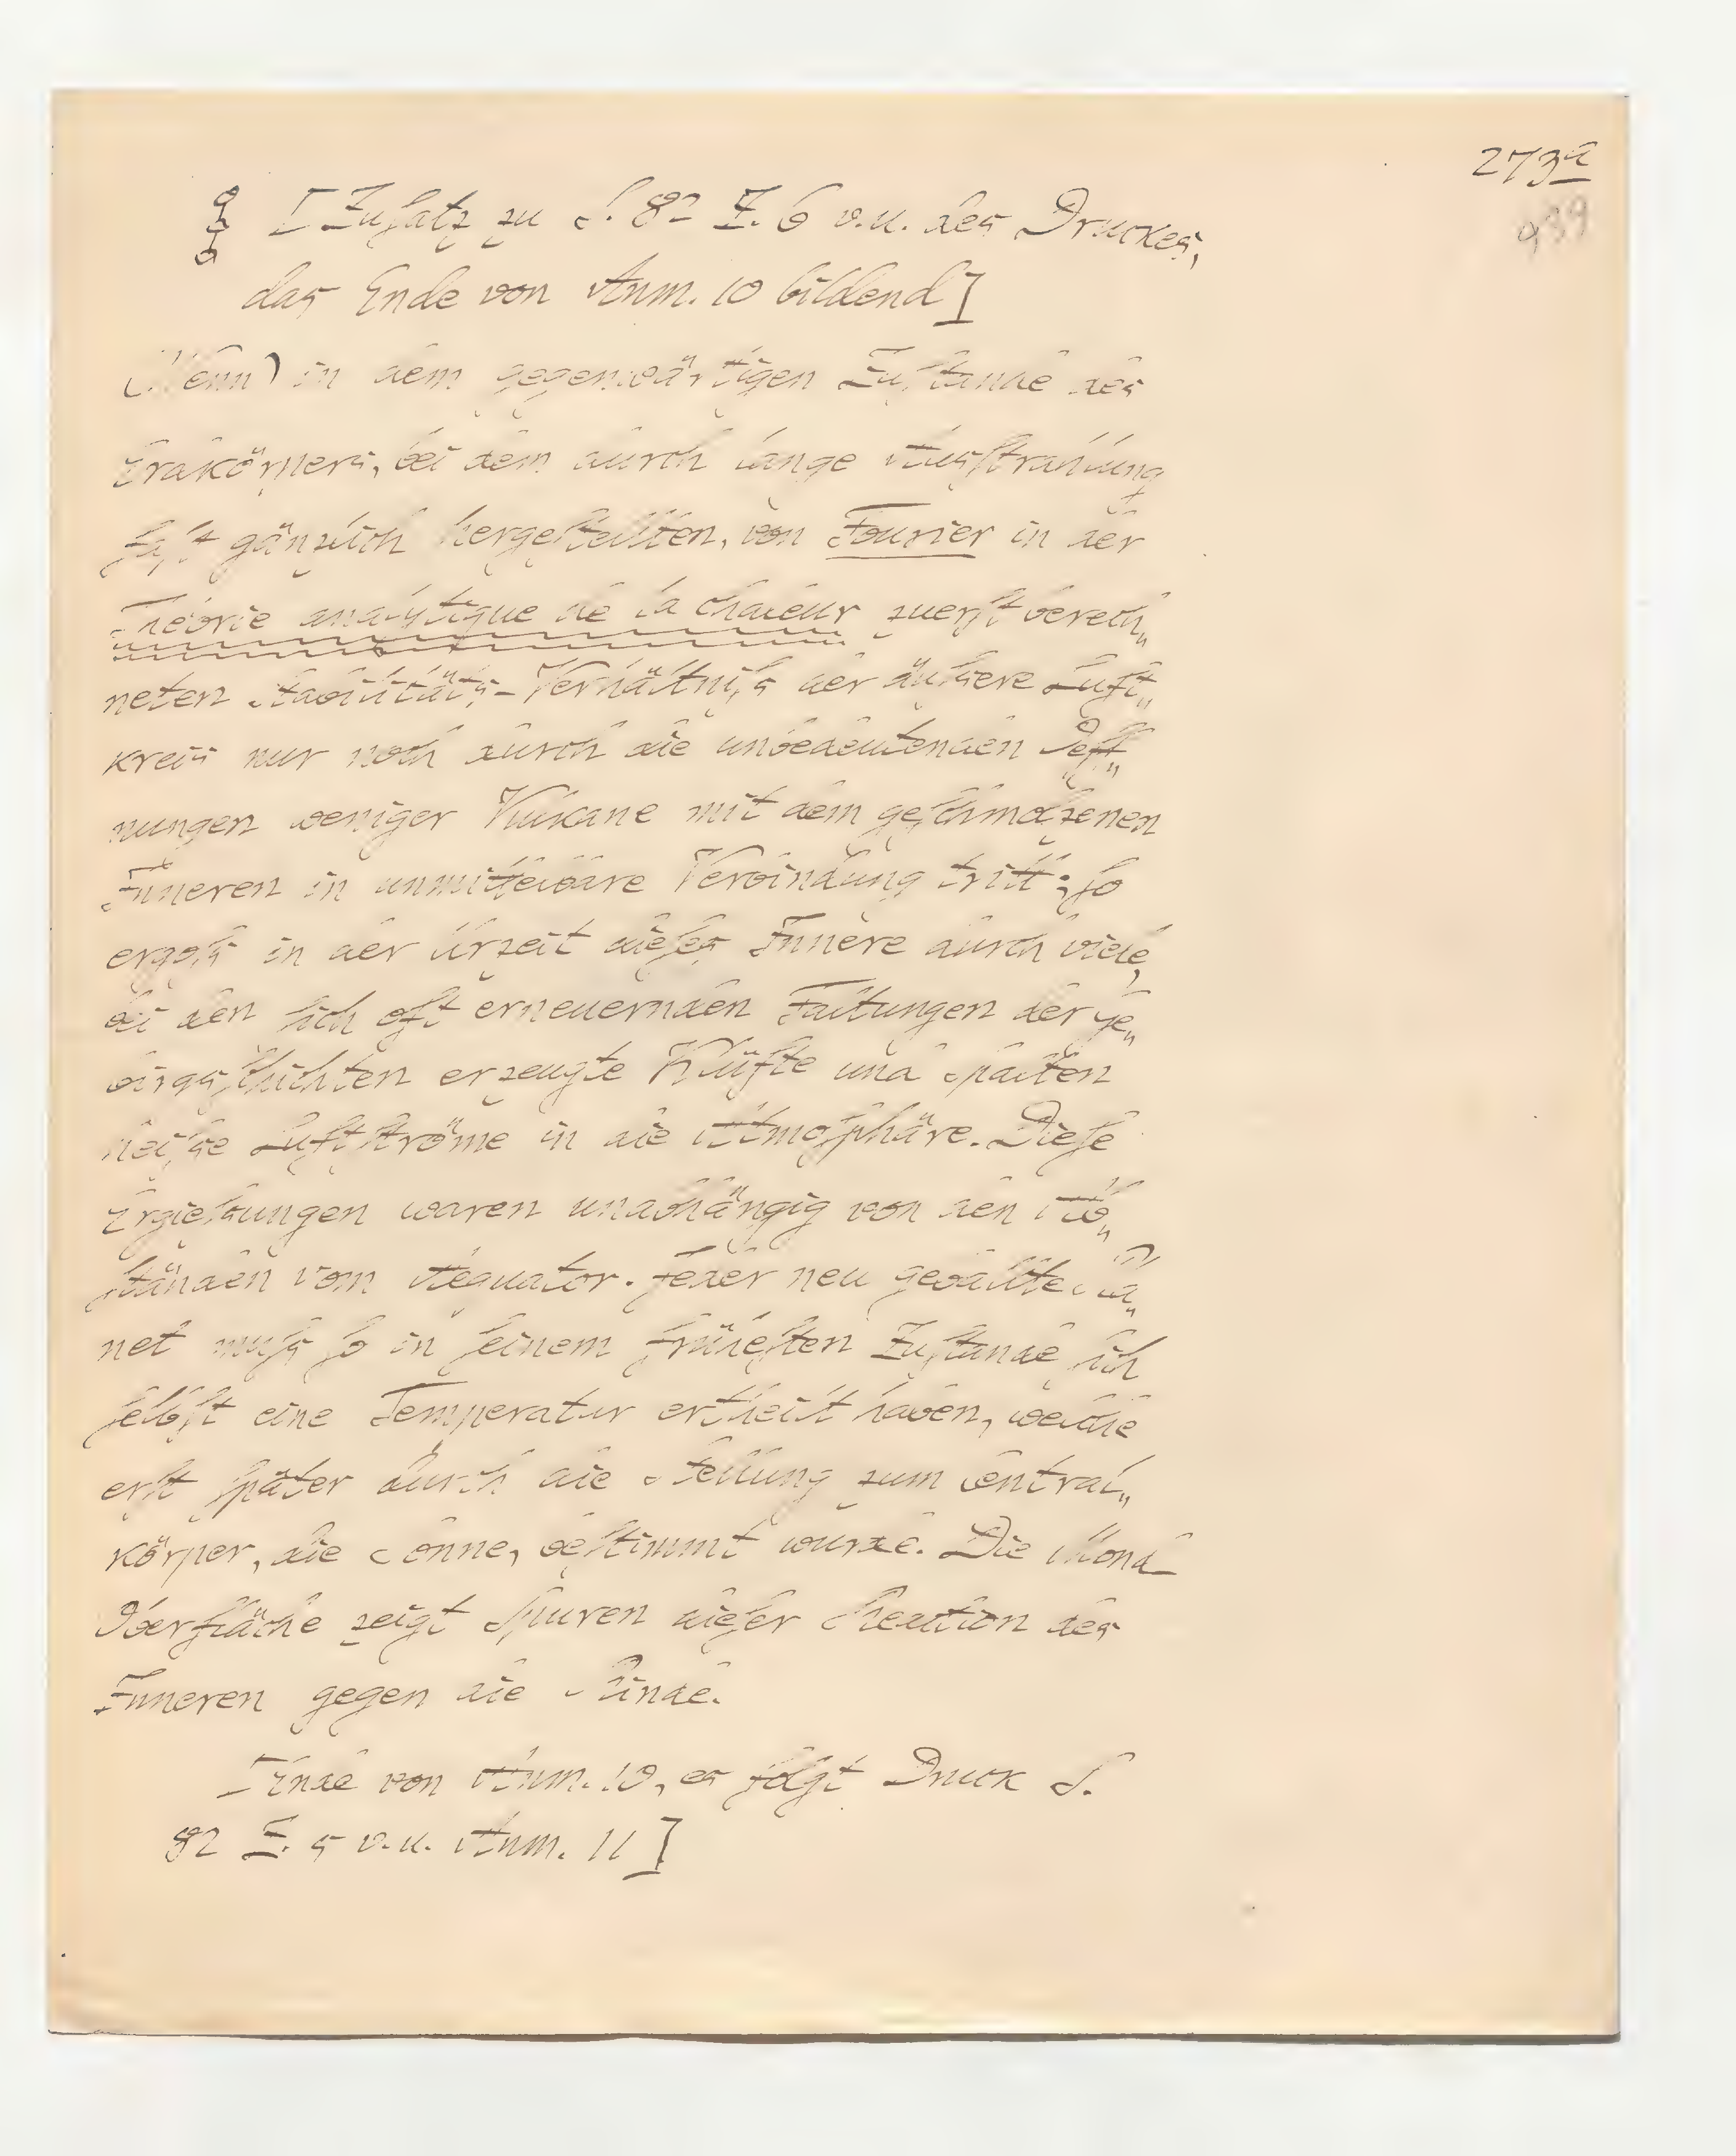 273a
939
[Zusatz zu S. 82 Z. 6 v.u. des Druckes,
das Ende von Anm. 10 bildend]
(Wenn) in dem gegenwärtigen Zustande des
Erdkörpers, bei dem durch lange Ausstrahlung
fast gänzlich hergestellten, von Fourier in der
Théorie analytique de la chaleur zuerst berech„
neten Stabilitäts-Verhältniss der äussere Luft„
kreis nur noch durch die unbedeutenden Oeff„
nungen weniger Vulkane mit dem geschmolzenen
Inneren in unmittelbare Verbindung tritt; so
ergoss in der Urzeit dieses Innere durch viele,
bei den sich oft erneuernden Faltungen der Ge„
birgsschichten erzeugte Klüfte und Spalten
heisse Luftströme in die Atmosphäre. Diese
Ergiessungen waren unabhängig von den Ab„
ständen vom Aequator. Jeder neu geballte Pla„
net muss so in seinem frühesten Zustande sich
selbst eine Temperatur ertheilt haben, welche
erst später durch die Stellung zum Central„
körper, die Sonne, bestimmt wurde. Die Mond-
Oberfläche zeigt Spuren dieser Reaction des
Inneren gegen die Rinde.
[Ende von Anm. 10, es folgt Druck S.
82 Z. 5 v.u. Anm. 11]